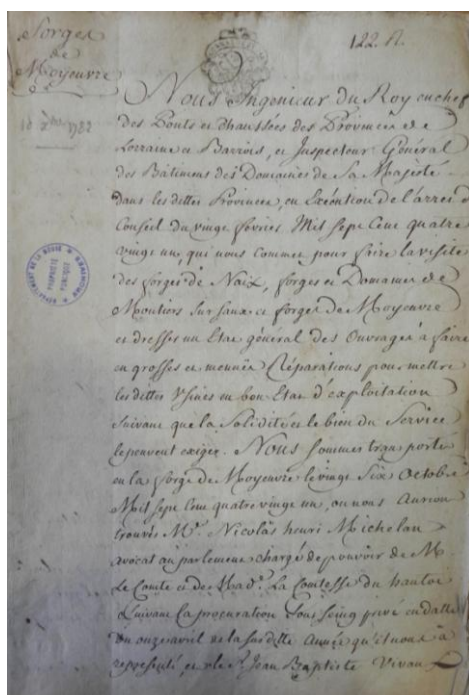 Forges
de
Moyeuvre
122. R.
1782
Nous Ingenieur du Roy en chef
des Ponts et chaussées des Provinces de
Lorraine et Barrois, et Inspecteur Général
des Bâtimens des Domaines de Sa Majesté
dans les dittes Provinces, en Exécution de l'arrest
Conseil du vingt fevrier Mil Sept Cent quatre
vingt un, qui nous commet pour faire la visite
des forges de Naix, forges et Domaine de
Moutiers sur Saux et forges de Moyeuvre
et dresser un Etat général des Ouvrages à faire
en grosses et menues Réparations pour mettre
les dittes Usines en bon Etat d'exploitation
suivant que la Solidité et le bien du Service
le peuvent exiger. Nous sommes transporté
en la forge de Moyeuvre le vingt Six Octobre
Mil Sept Cent quatre vingt un, ou nous Aurion
trouvés Mr. Nicolas henri Michelan
avocat au parlement chargé de pouvoir de M.
Le Comte et de Mad. La Comtesse du hautoi
Suivant la procuration sous seing privé en datte
du onze avril de la susditte Année qu'il nous à
representé, et le Sr. Jean Baptiste Vivaux
DEPARTEMENT DE LA MEUSE
PROPRIÉTÉ
PUBLIQUE
ARCHIVES